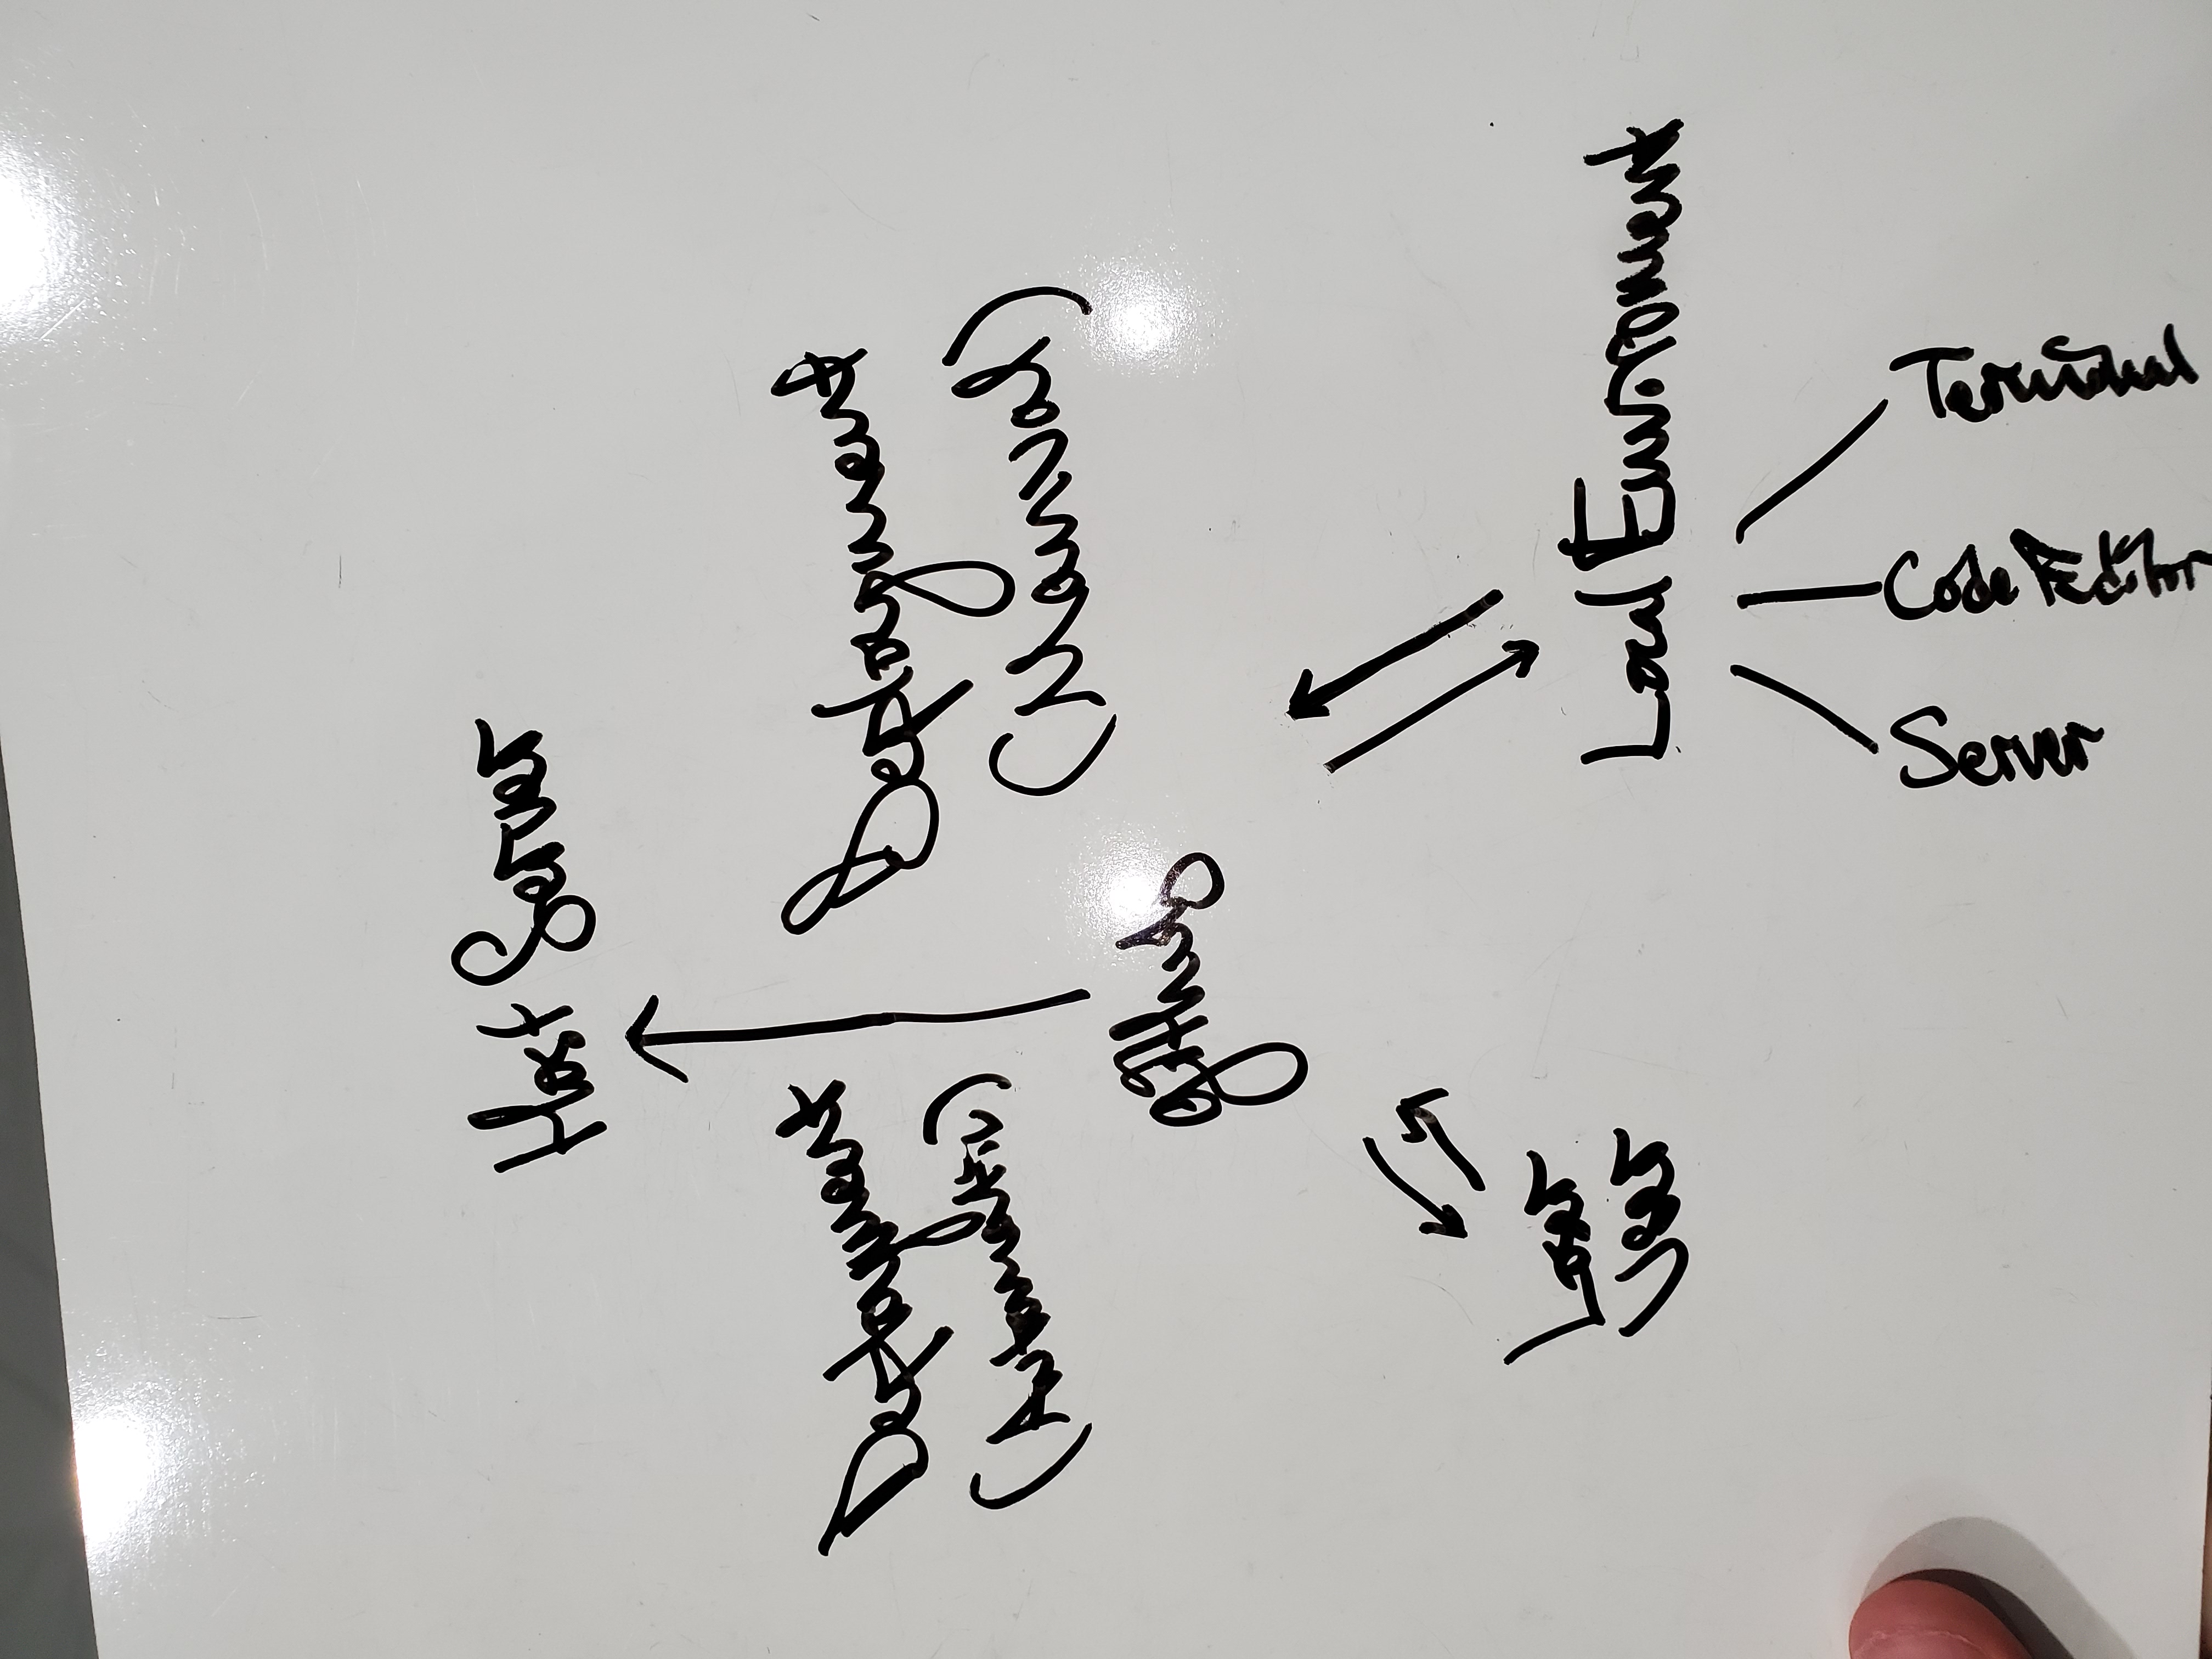 Host Server
Deployment
(Automatic)
Deployment
(Manual)
github
Loser
User
Local Environment
Server
Code Editor
Terminal